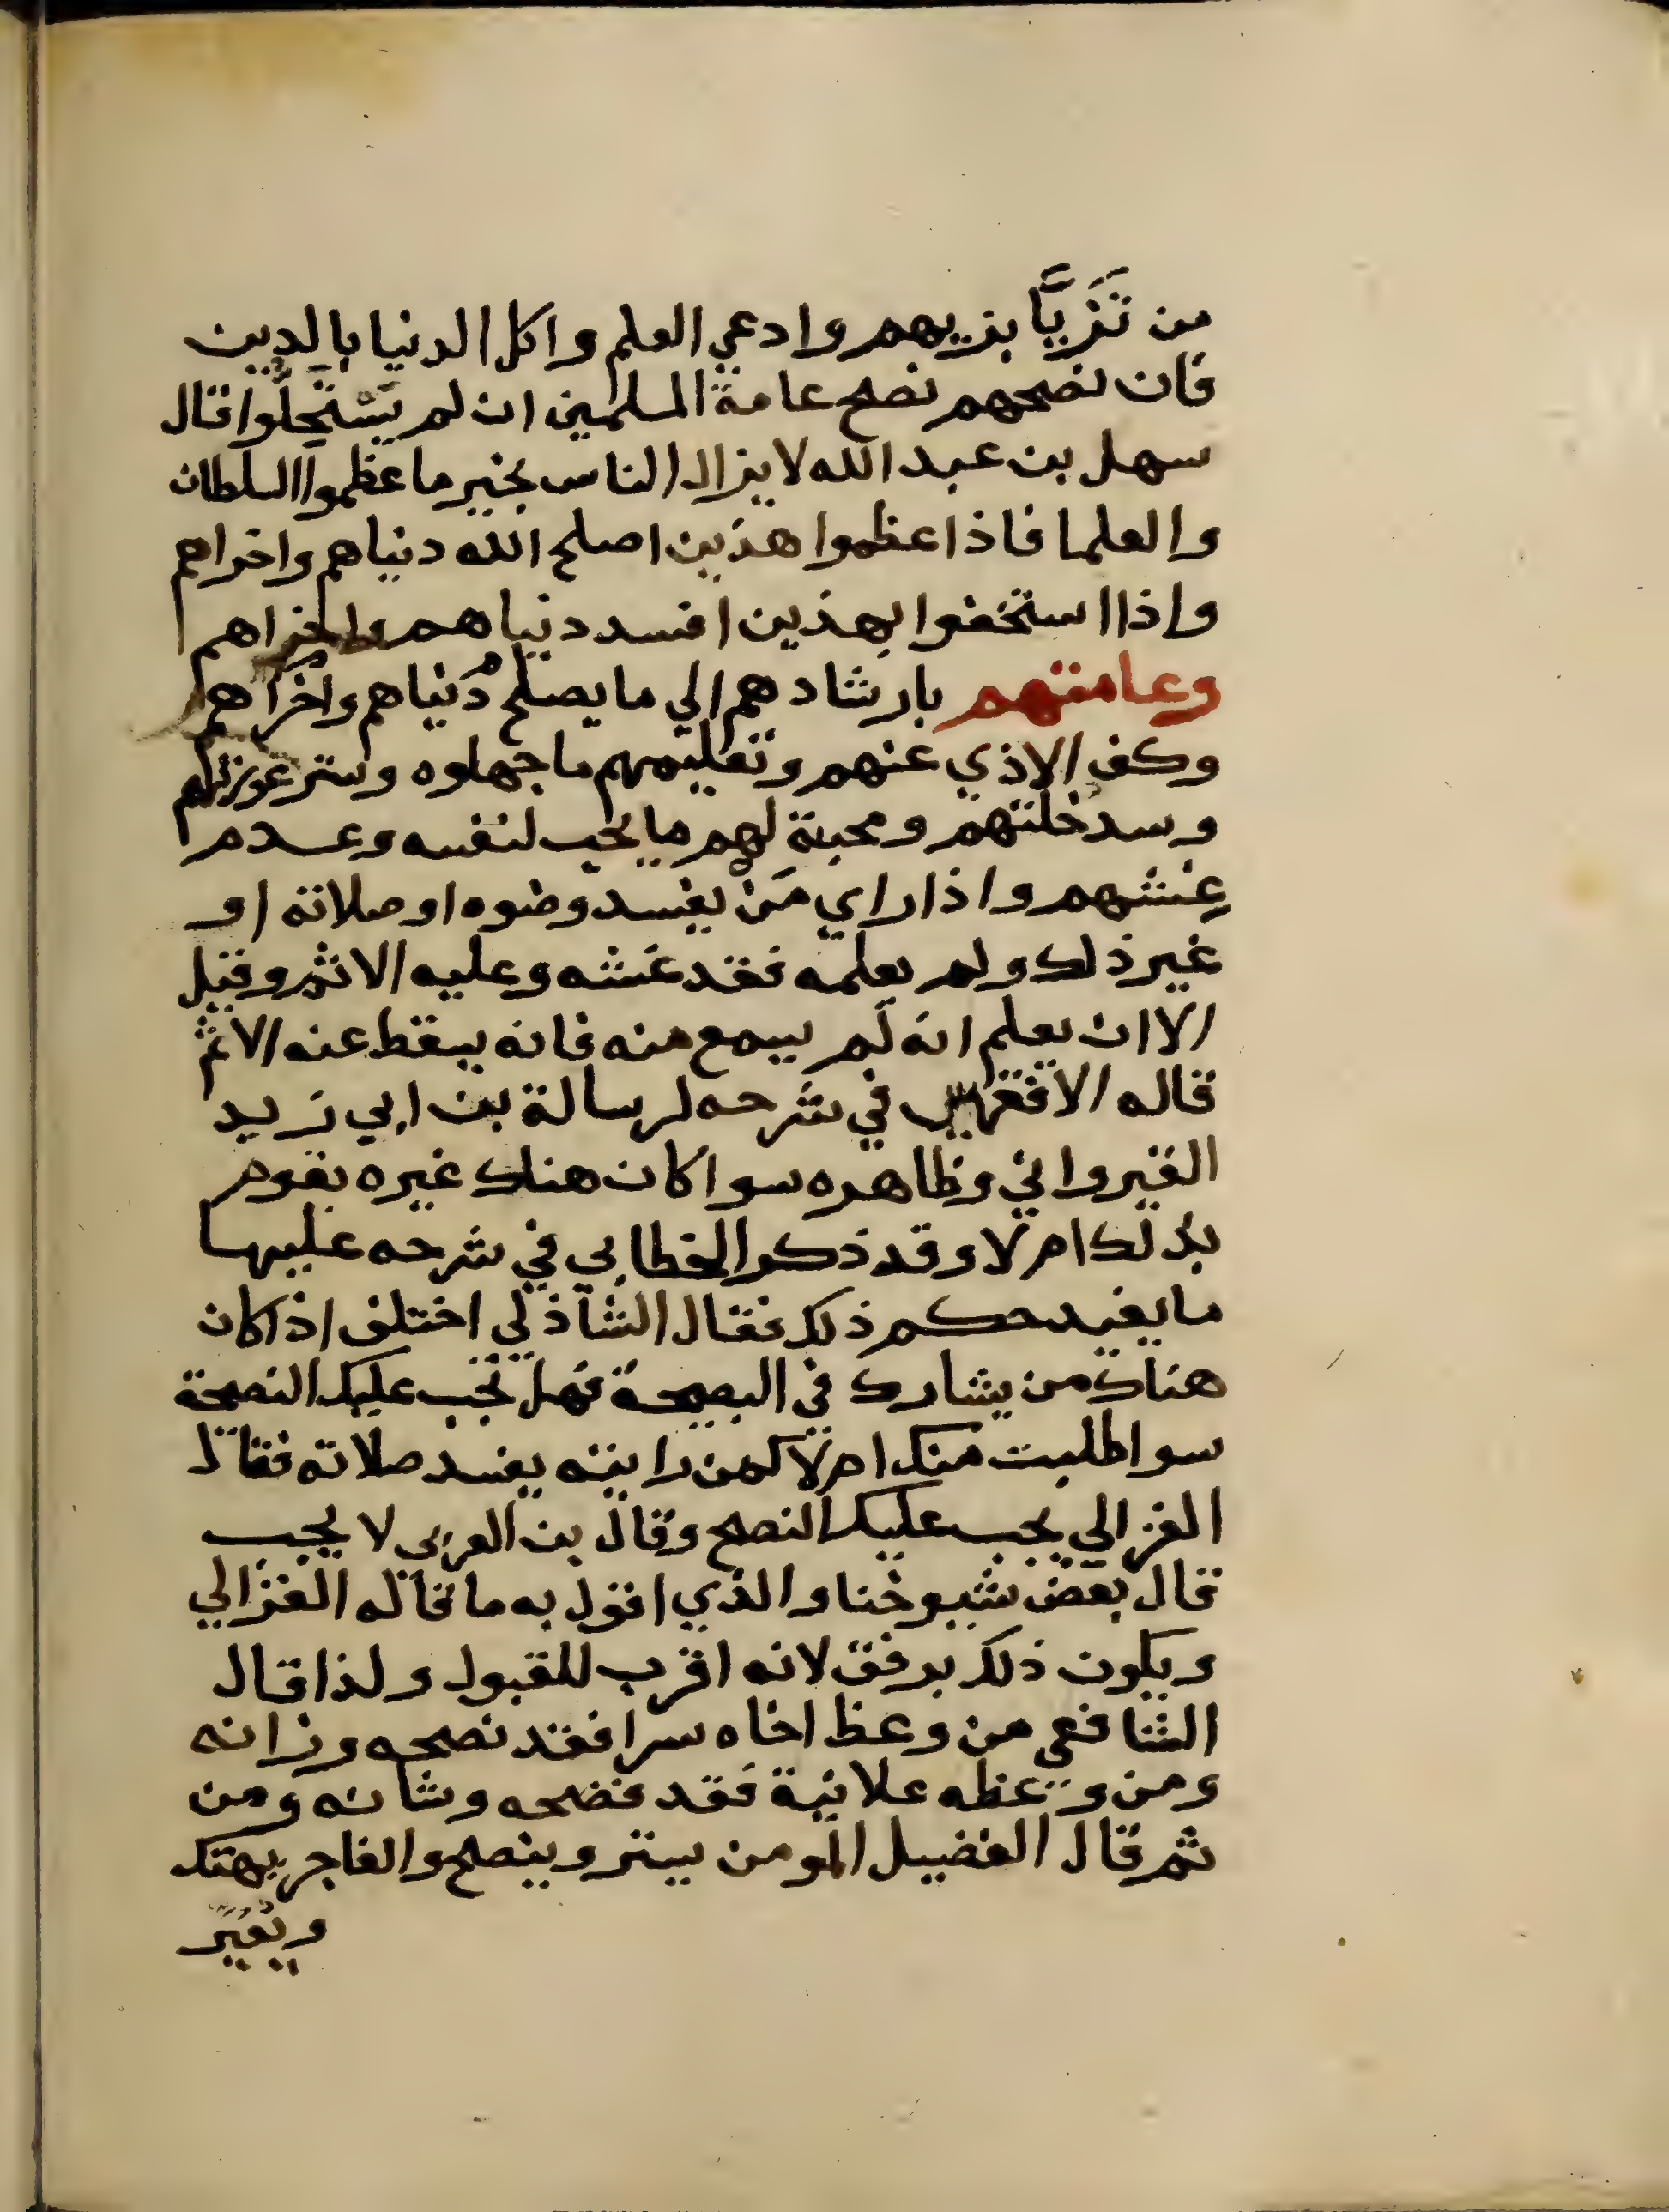 من تَزَيَّا بزيهم وادعي العلم واكل الدنيا بالدين
فان نصحهم نصح عامة المسلمين ان لم يَسْتَحِلُّوا قال
سهل بن عبد الله لا يزال الناس بخير ما عظموا السلطان
والعلما فاذا عظموا هذين اصلح الله دنياهم واخراهم
واذا استخفوا بهذين افسد دنياهم واخراهم
وعامتهم بارشادهم الي ما يصلح دُنياهم واخراهم
وكف الاذي عنهم وتعليمهم ما جهلوه وستر عوراتهم
وسد خلتهم ومحبة لهم ما يحب لنفسه وعدم
غشهم واذا راي مَنْ يفسد وضوه او صلاته او
غير ذلك ولم يعلمه فقد غشه وعليه الاثم وقيل
الا ان يعلم انه لم يسمع منه فانه يسقط عنه الاثم
قاله الاقفهسي في شرحه لرسالة بن ابي زيد
القيرواني وظاهره سوا كان هناك غيره يقوم
بذلك ام لا وقد ذكر الخطابي في شرحه عليها
ما يفيد حكم ذلك فقال الشاذلي اختلف اذا كان
هناك من يشارك في النصيحة فهل تجب عليك النصيحة
سوا طلبت منك ام لا كمن رايته يفسد صلاته فقال
الغزالي يجب عليك النصح وقال بن العربي لا يجب
قال بعض شيوخنا والذي اقول به ما قاله الغزالي
ويكون ذلك برفق لانه اقرب للقبول ولذا قال
الشافعي من وعظ اخاه سرا فقد نصحه وزانه
ومن وعظه علانية فقد فضحه وشانه ومن
ثم قال الفضيل المومن يستر وينصح والفاجر يهتك
ويُعَيِّر